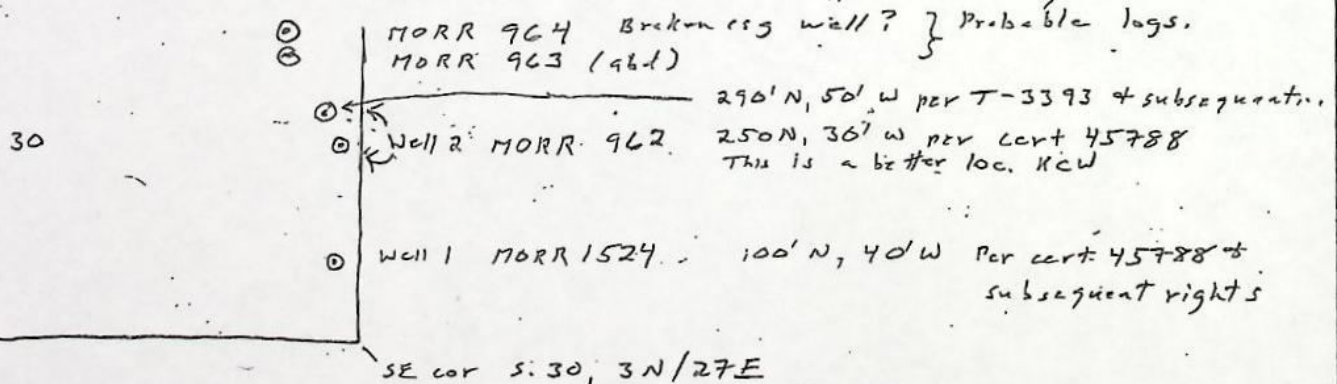 MORR 964 Broken csg well? } Probable logs.
MORR 963 (abd)
290' N, 50' W per T-3393 & subsequent...
30
Well 2 MORR 962 250N, 30' W per cert 45788
This is a better loc. KCW
Well 1 MORR 1524 100' N, 40' W Per cert 45788 &
subsequent rights
SE cor S. 30, 3N/27E